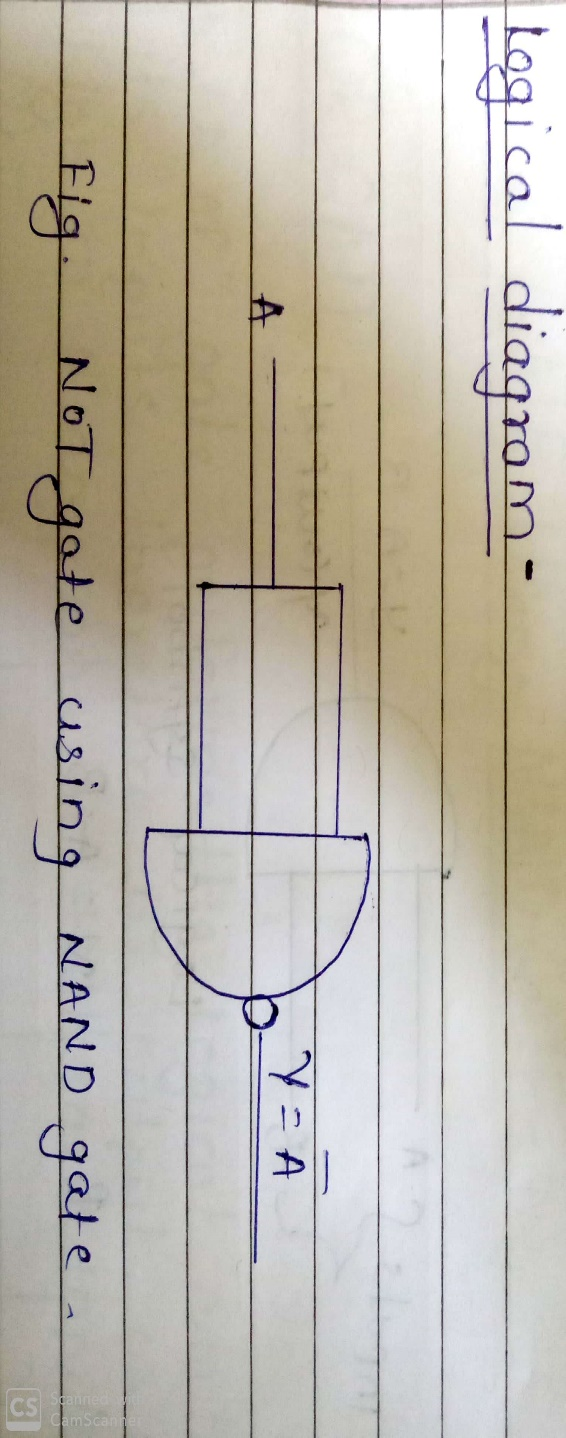 Logical diagram -
A
Y = A̅
Fig. NOT gate using NAND gate.
CS Scanned with CamScanner